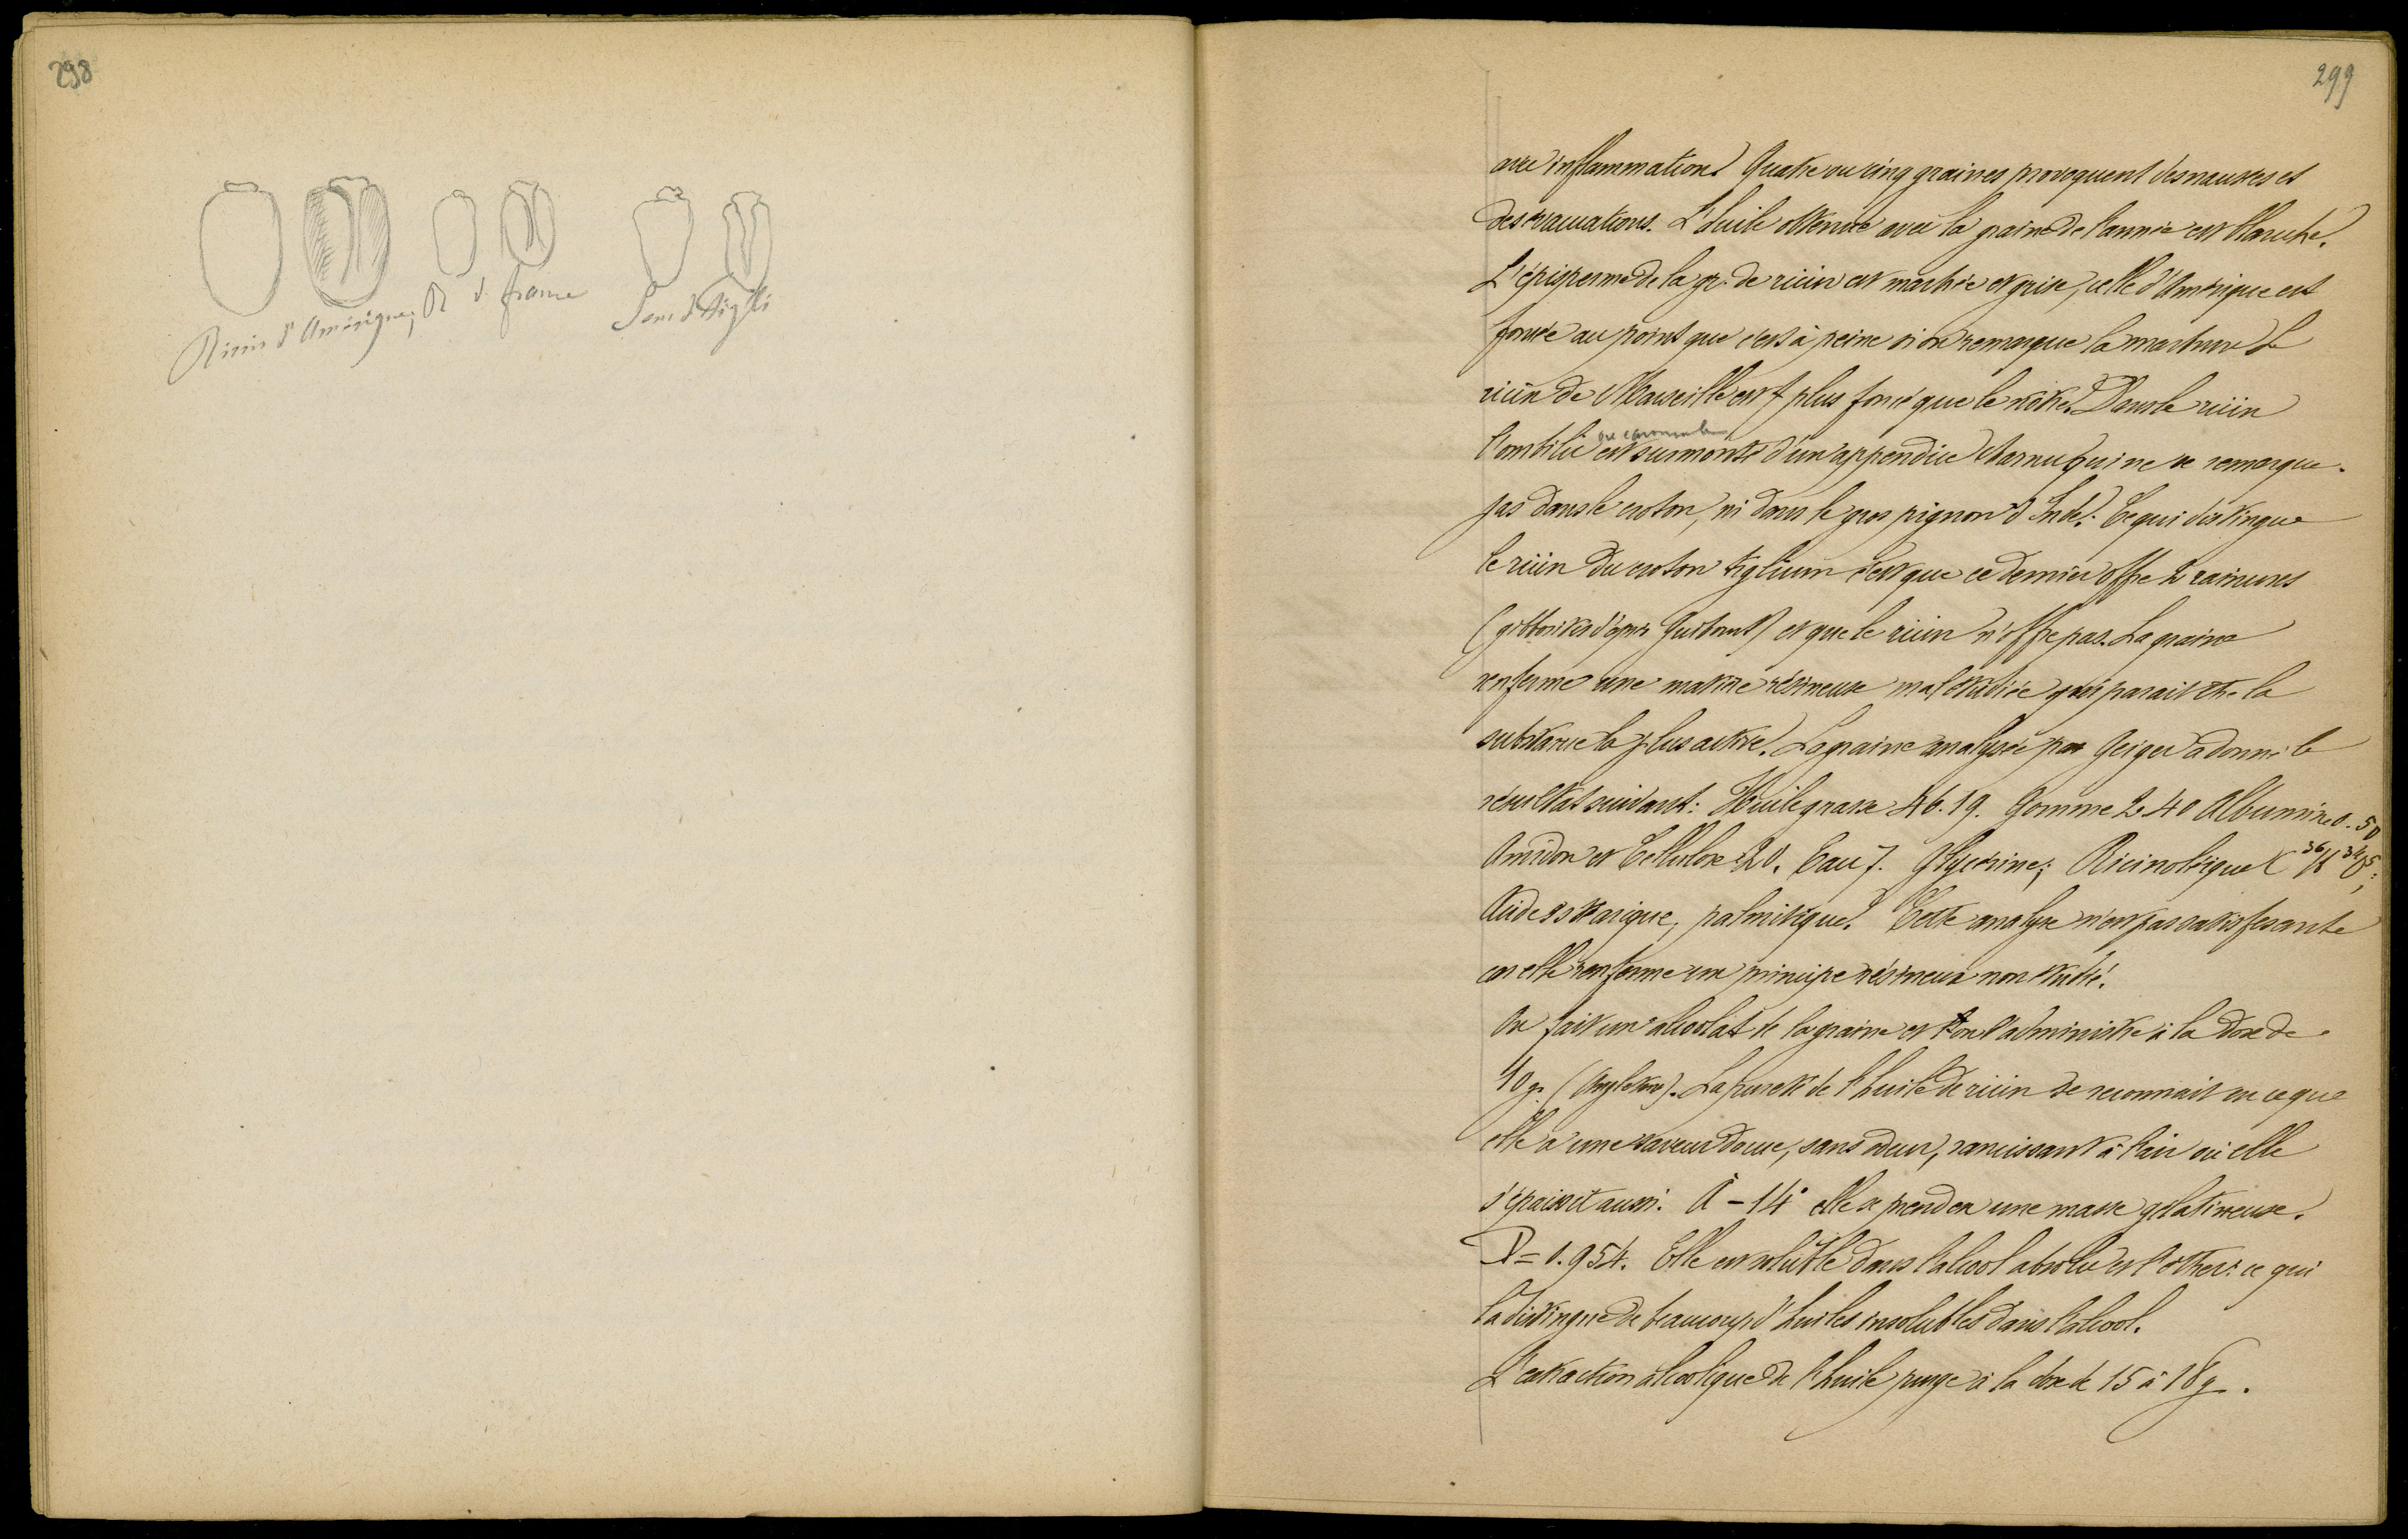 298
Ricin d'Amérique; R d. france Sem. d. Tigli
299
avec inflammation. Quatre ou cinq graines provoquent des nausées et
des évacuations. L'huile obtenue avec la graine de l'année est blanche.
L'épisperme de la gr. de ricin est marbrée et grise, celle d'Amérique est
foncée au point que c'est à peine si on remarque la marbrure Le
ricin de Marseille est plus foncé que le nôtre. Dans le ricin
ou caroncule
l'ombilic est surmonté d'un appendice charnu qui ne se remarque
pas dans le croton, ni dans le gros pignon d'Inde. Ce qui distingue
le ricin du croton tiglium c'est que ce dernier offre 2 rainures
(gibbosités d'après Guibourt) et que le ricin n'offre pas. La graine
renferme une matière résineuse mal étudiée qui parait être la
substance la plus active. La graine analysée par Geiger a donné le
résultat suivant: Huile grasse 46.19. Gomme 2.40 Albumine 0.50
Amidon et Cellulose 20. Eau 7. Glycérine; Ricinoléique C³⁶H³⁴O⁵;
Acides stéarique, palmitique. Cette analyse n'est pas satisfesante
car elle renferme un principe résineux non étudié.
On fait un alcoolat de la graine et l'on l'administre à la dose de
10 gr. (Angleterre). La pureté de l'huile de ricin se reconnait en ce que
elle a une saveur douce, sans odeur, rancissant à l'air où elle
s'épaissit aussi. A -14° elle se prend en une masse gélatineuse.
D = 0.954. Elle est soluble dans l'alcool absolu et l'éther: ce qui
la distingue de beaucoup d'huiles insolubles dans l'alcool.
L'extraction alcoolique de l'huile purge à la dose de 15 à 18 g.